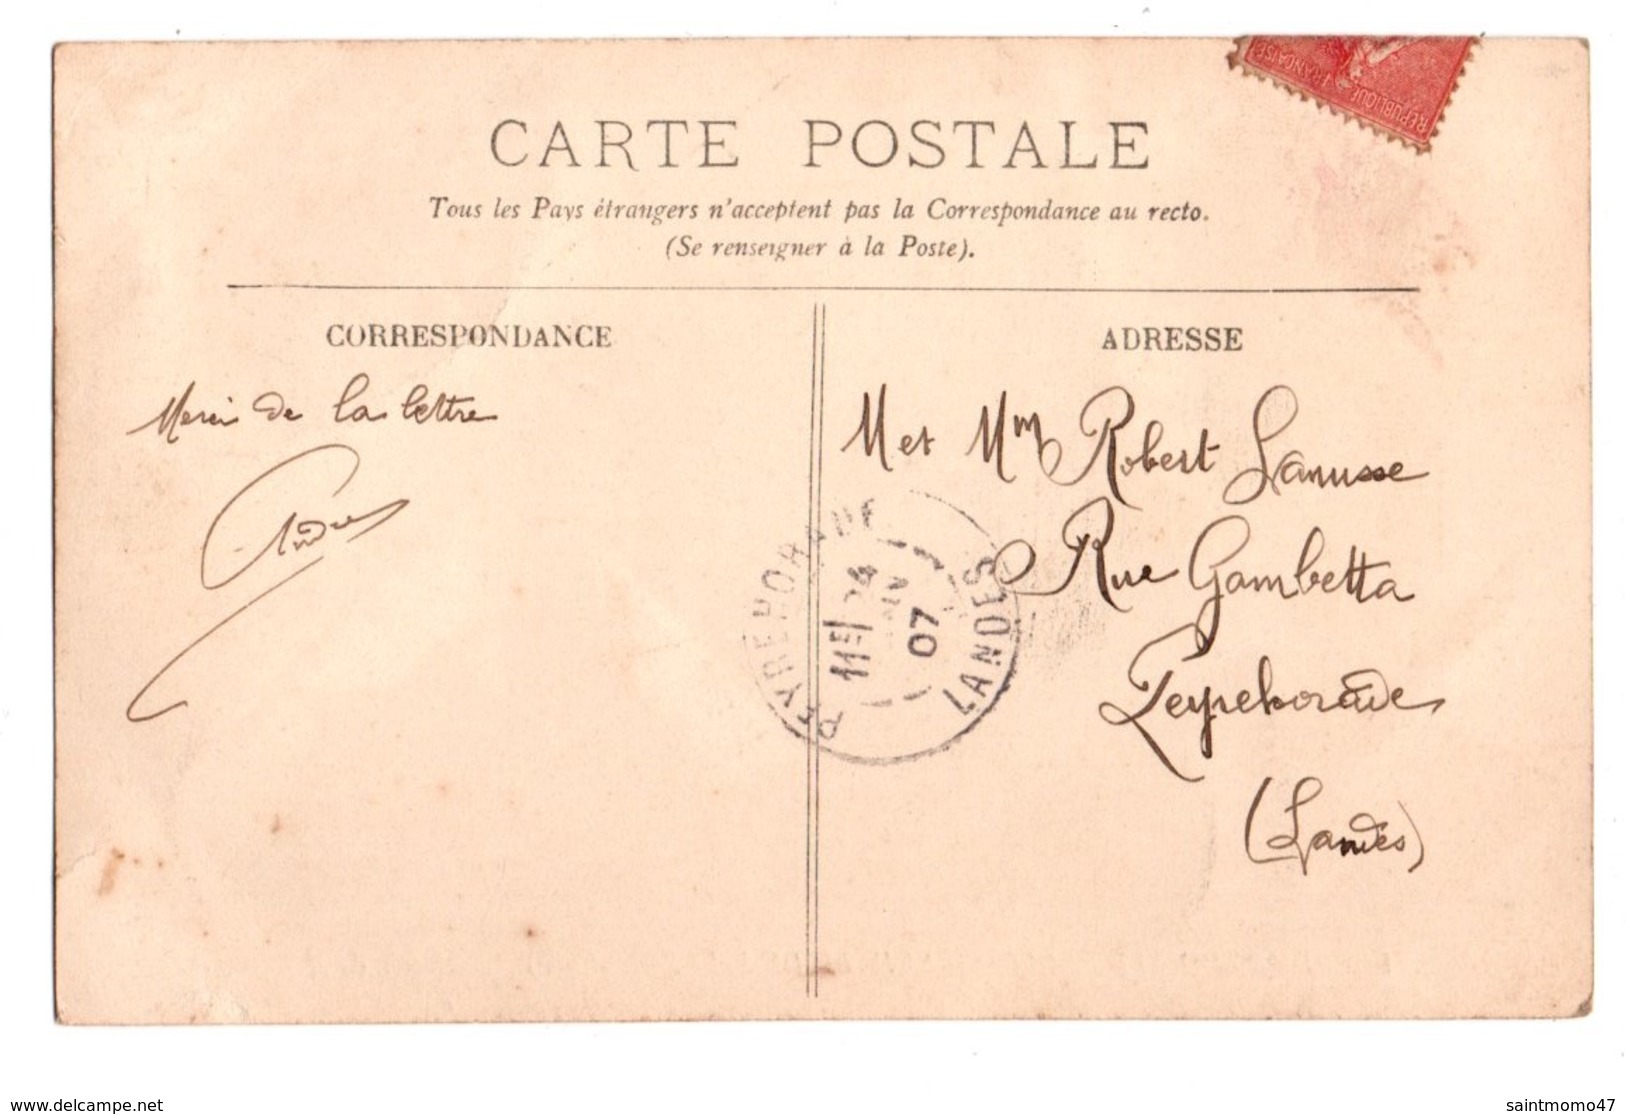 RÉPUBLIQUE FRANÇAISE
CARTE POSTALE
Tous les Pays étrangers n'acceptent pas la Correspondance au recto.
(Se renseigner à la Poste).
CORRESPONDANCE
Merci de la lettre
André
ADRESSE
M et Mm Robert Lanusse
Rue Gambetta
Peyrehorade
(Landes)
PEYREHORADE
11E 24
07
LANDES
www.delcampe.net
saintmomo47